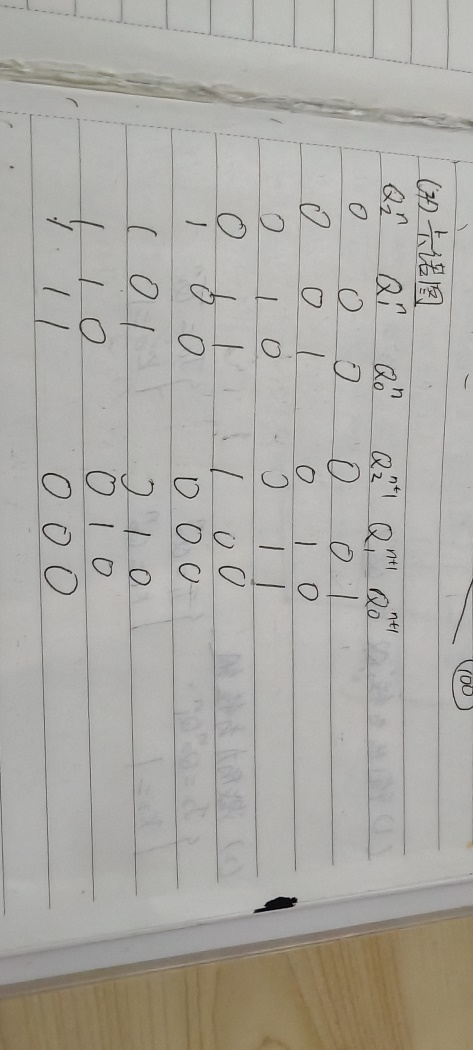 (状)卡诺图
Q₂ⁿ Q₁ⁿ Q₀ⁿ Q₂ⁿ⁺¹ Q₁ⁿ⁺¹ Q₀ⁿ⁺¹
0 0 0 0 0 1
0 0 1 0 1 0
0 1 0 0 1 1
0 1 1 1 0 0
1 0 0 0 0 0
1 0 1 0 1 0
1 1 0 0 1 0
1 1 1 0 0 0
100